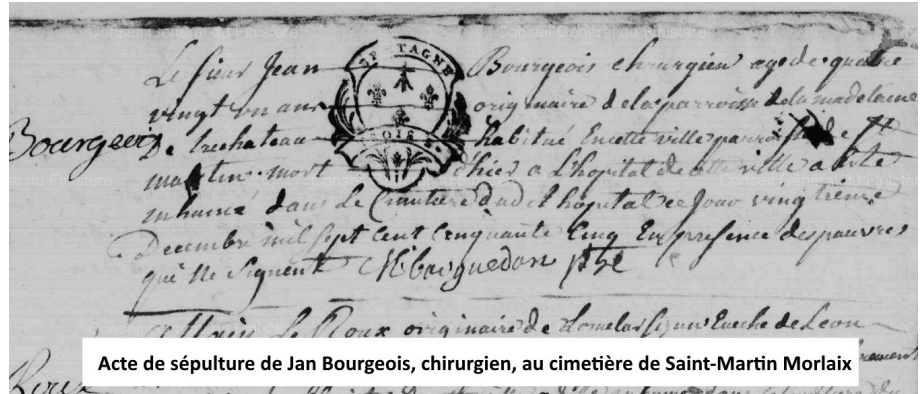 Conseil Général du Finistère Conseil Général du Finistère
BRETAGNE
Le sieur Jean Bourgeois chirurgien age de quatre
vingt un ans originaire de la parroisse de la madelaine
Bourgeois
De trechateau habitué En cette ville parroisse de St
martin mort d'hier a L'hopital de cette ville a eté
inhumé dans Le Cimetiere dudet hopital ce Jour vingtieme
Decembre mil sept Cent Cinquante Cinq En presence des pauvres
qui Ne Signent
Le Roux originaire de Eveché de Leon
Roux
Acte de sépulture de Jan Bourgeois, chirurgien, au cimetière de Saint-Martin Morlaix